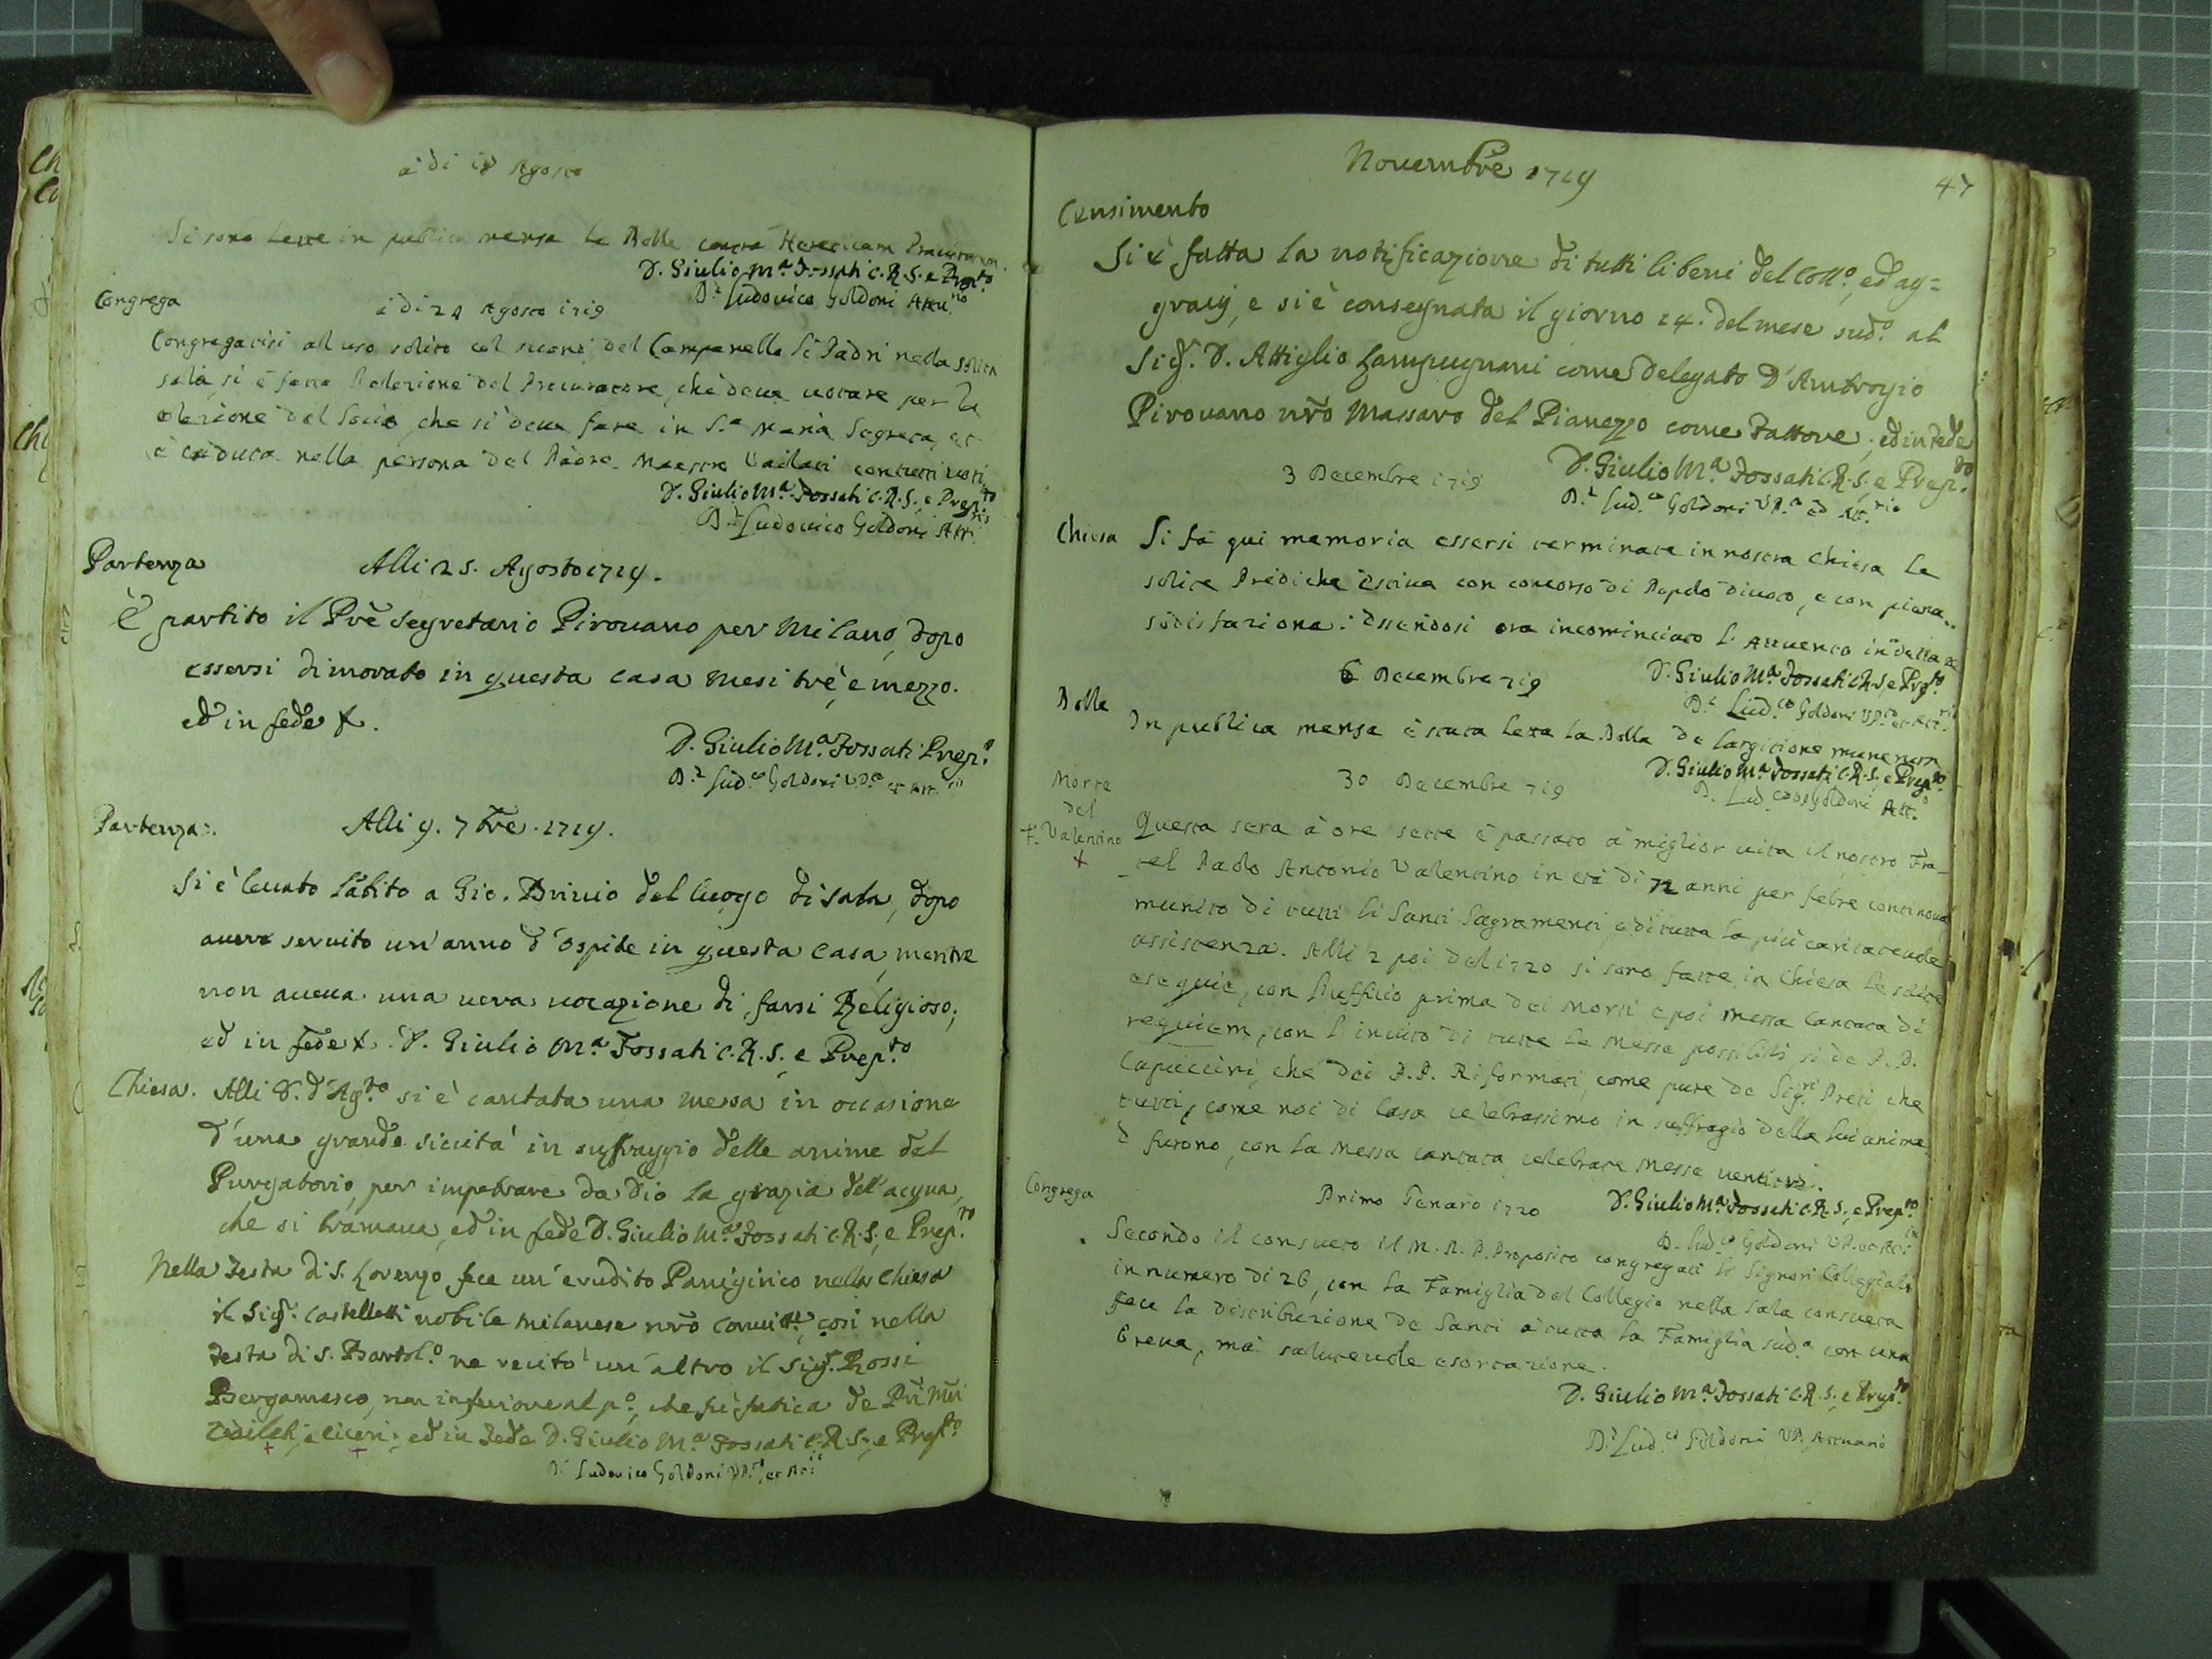 à di 18 Agosto
Si sono lette in publica mensa le Bolle contra Hereticam Pravitatem
D. Giulio Mª Fossati C.R.S. e Prepto
D. Ludovico Goldoni Attu.rio
Congrega
à di 24 Agosto 1719
Congregatisi all uso solito col suono del Campanello li Padri nella solita
sala, si è fatta l'elezione del Procuratore, che deve votare per la
elezione del Socio, che si deve fare in S.ta Maria Segreta, et
è caduta nella persona del Padre Maestro Vailati con tutti voti
D. Giulio Mª Fossati C.R.S. e Prep.to
D. Ludovico Goldoni Att.rio
Partenza
Alli 25. Agosto 1719.
È partito il Prē Segretario Pirovano per Milano, dopo
essersi dimorato in questa casa mesi trè, e mezzo.
ed in fede &.
D. Giulio Mª Fossati Prep.o
D. Lud.co Goldoni V.P.o et Att.rio
Partenza.
Alli 9. 7bre. 1719.
Si è levato l'abito a Gio. Brivio del luogo di Sala, dopo
avere servito un'anno d'ospite in questa casa, mentre
non aveva una vera vocazione di farsi Religioso;
ed in fede &. D. Giulio Mª Fossati C.R.S. e Prep.to
Chiesa. Alli 8. d'Ag.to si è cantata una messa in occasione
d'una grande siccità in suffraggio delle anime del
Purgatorio, per impetrare da Dio la grazia dell'acqua,
che si bramava, ed in fede D. Giulio Mª Fossati C.R.S. e Prep.to
Nella Festa di S. Lorenzo fece un'erudito Panigirico nella Chiesa
il Sig.r Castelletti nobile milanese nrō convitt.e, così nella
Festa di S. Bartol.o ne recitò un'altro il Sig.r Rossi
Bergamasco, non inferiore al p.o, che fù fatica de Pri Mri
, e Ciceri; ed in Fede D. Giulio Mª Fossati C.R.S. e Prep.to
D. Ludovico Goldoni V.P. et Att.rio
Novembre 1719
47
Censimento
Si è fatta la notificazione di tutti li beni del Coll.o, ed ag=
gravij, e si è consegnata il giorno 24. del mese sud.o al
Sig.r D. Attiglio Lampugnani come Delegato d'Ambrogio
Pirovano nrō Massaro del Pianezzo come Fattore; ed in Fede
D. Giulio Mª Fossati C.R.S. e Prep.to
3 Decembre 1719
D. Lud.co Goldoni V.P. ed Att.rio
Chiesa Si fà qui memoria essersi terminate in nostra Chiesa le
solite Prediche Estive con concorso di Popolo divoto, e con piena
sodisfazione: Essendosi ora incominciato l'Avvento
6 Decembre 719
D. Giulio Mª Fossati C.R.S. e Prep.to
D. Lud.co Goldoni V.P. et Att.rio
Bolle
In publica mensa è stata letta la Bolla de largitione munerum
D. Giulio Mª Fossati C.R.S. e Prep.to
30 Decembre 719
D. Lud.co Goldoni Att.o
Morte
del
F. Valentino
Questa sera à ore sette è passato à miglior vita il nostro Fra-
tel Paolo Antonio Valentino in età di 72 anni per febre continova
munito di tutti li Santi Sagramenti, e di tutta la più caritatevole
assistenza. Alli 2 poi del 1720 si sono fatte in Chiesa le solite
esequie, con l'ufficio prima dei Morti e poi messa cantata di
requiem, con l'invito di tutte le messe possibili, sì de P.P.
Capuccini, che dei P.P. Riformati, come pure de Sig.ri Preti che
tutti, come noi di Casa celebrassimo in suffragio della lui anima
e furono, con la Messa cantata, celebrate messe
Congrega
Primo Genaro 1720
D. Giulio Mª Fossati C.R.S. e Prep.to
D. Lud.co Goldoni V.P. et Att.rio
Secondo il consueto il M.R.P. Proposito congregati li Signori Collegiali
in numero di 26, con la Famiglia del Collegio nella sala consueta
fece la distribuzione de Santi à tutta la Famiglia sud.a con una
breve, mà salutevole esortazione.
D. Giulio Mª Fossati C.R.S. e Prep.to
D. Lud.co Goldoni V.P. Attuario